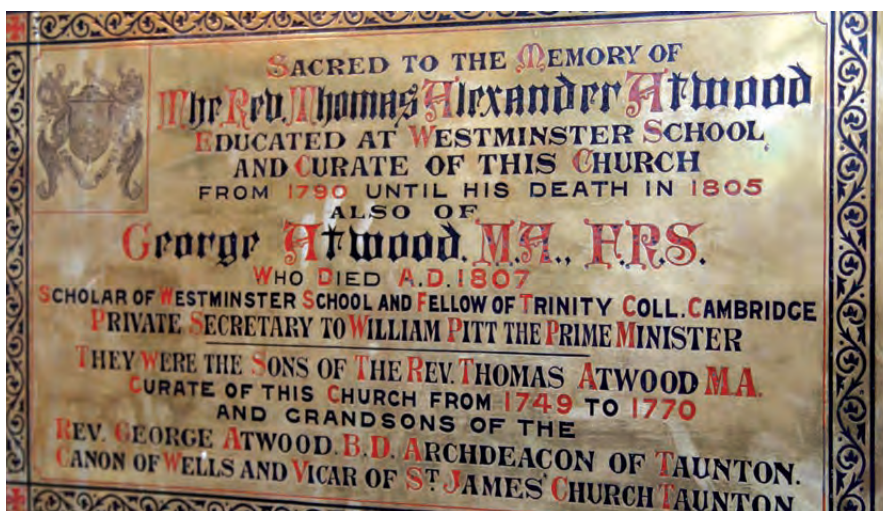 SACRED TO THE MEMORY OF
The Rev. Thomas Alexander Atwood
EDUCATED AT WESTMINSTER SCHOOL
AND CURATE OF THIS CHURCH
FROM 1790 UNTIL HIS DEATH IN 1805
ALSO OF
George Atwood. M.A., F.R.S.
WHO DIED A.D. 1807
SCHOLAR OF WESTMINSTER SCHOOL AND FELLOW OF TRINITY COLL. CAMBRIDGE
PRIVATE SECRETARY TO WILLIAM PITT THE PRIME MINISTER
THEY WERE THE SONS OF THE REV. THOMAS ATWOOD M.A.
CURATE OF THIS CHURCH FROM 1749 TO 1770
AND GRANDSONS OF THE
REV. GEORGE ATWOOD. B.D. ARCHDEACON OF TAUNTON.
CANON OF WELLS AND VICAR OF ST JAMES' CHURCH TAUNTON